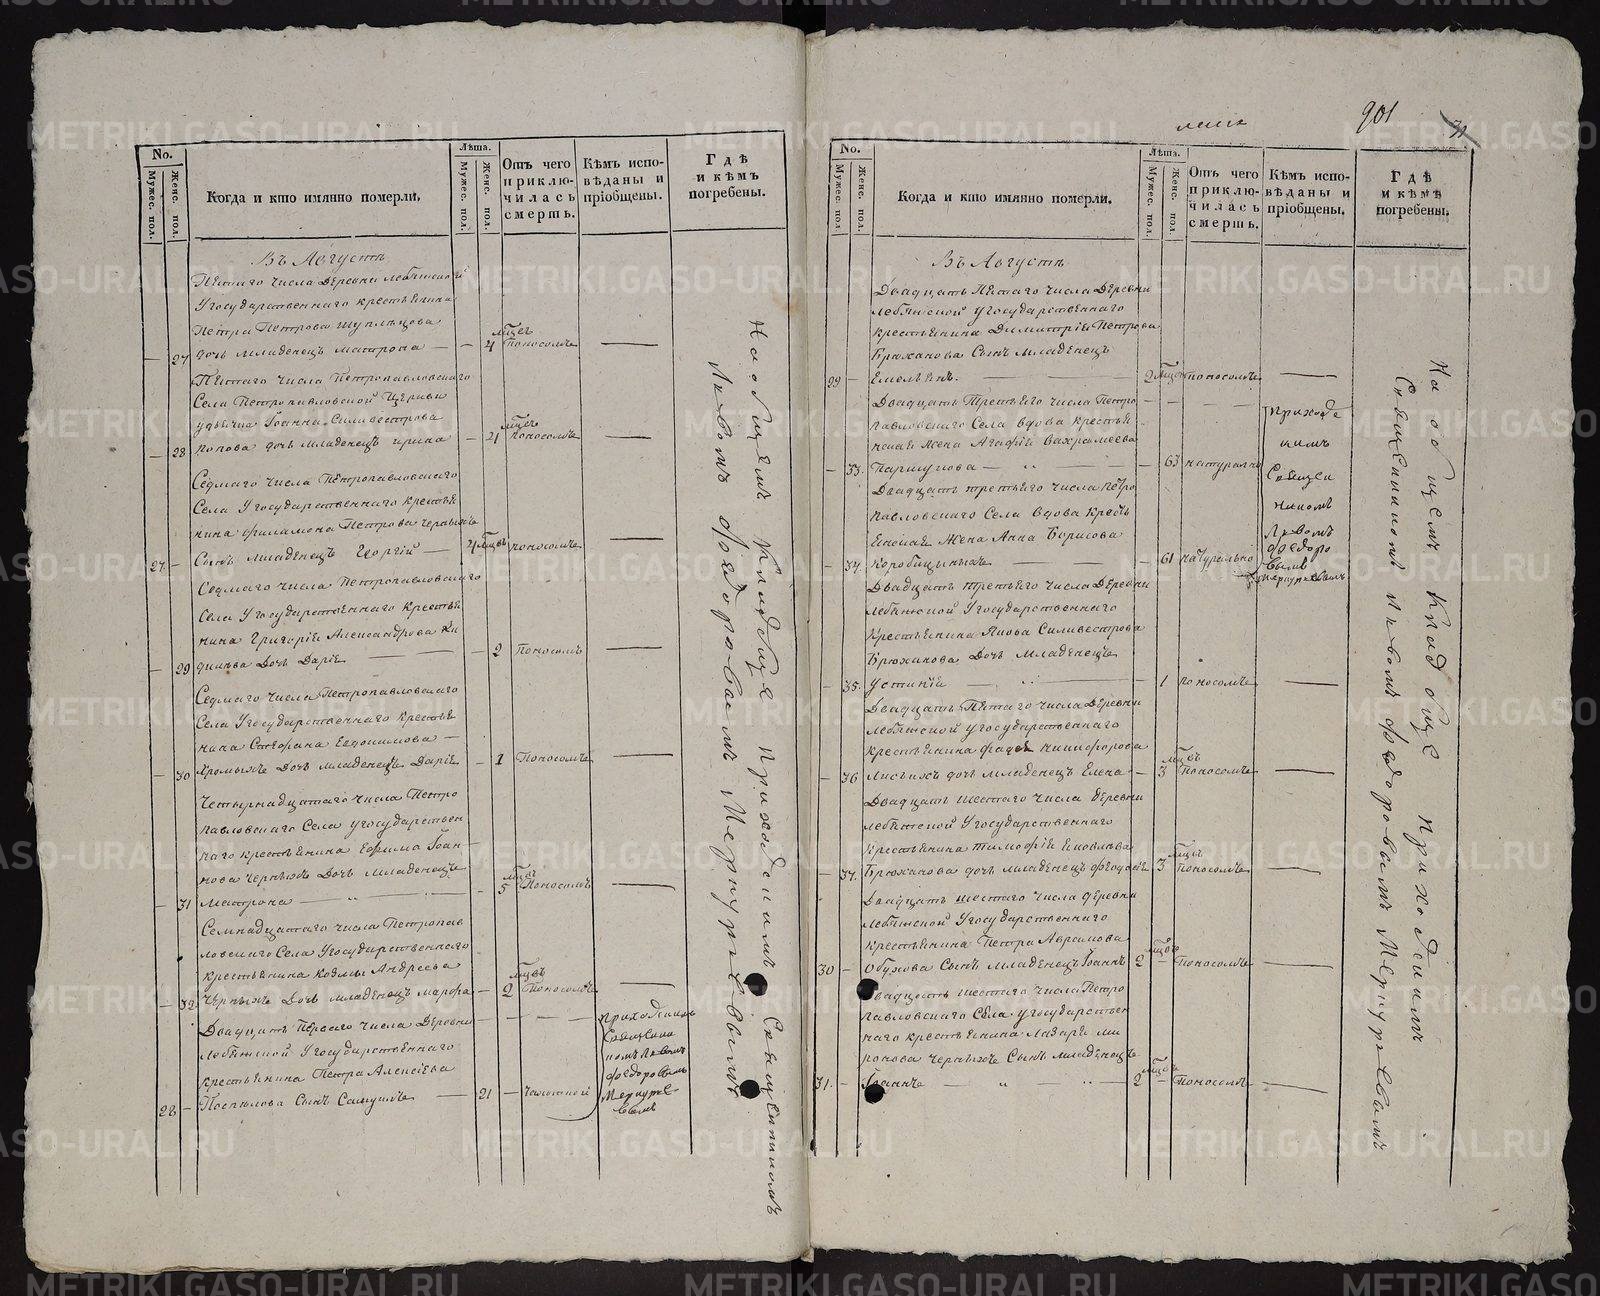 901
No.
Мужес. пол.
Женс. пол.
Когда и кто имянно померли.
Лѣта.
Мужес. пол.
Женс. пол.
Отъ чего приклю-
чилась
смерть.
Кѣмъ испо-
вѣданы и
пріобщены.
Гдѣ
и кѣмъ
погребены.
Въ Августѣ
Пятаго числа Деревни
Государственнаго крестьянина
Петра Петрова
27 дочь младенецъ Матрона — 4 поносомъ
Пятаго числа Петропавловскаго
Села Петропавловской Церкви
Іоанна Силивестрова
28 Попова дочь младенецъ Ирина — 4 поносомъ
Седмаго числа Петропавловскаго
Села Государственнаго крестья
нина Филамона Петрова Черныхъ
27 Сынъ младенецъ Георгій — 4 поносомъ
Седмаго числа Петропавловскаго
Села Государственнаго крестья
нина Григорія Александрова
29 дочь Дарія — 2 поносомъ
Седмаго числа Петропавловскаго
Села Государственнаго крестья
нина Стефана Евдокимова
30 дочь младенецъ Дарія — 1 Поносомъ
Четырнадцатаго числа Петро
павловскаго Села государствен
наго крестьянина Ефима Іоан
нова Черныхъ дочь младенецъ
31 Матрона — 5 Поносомъ
Семнадцатаго числа Петропав
ловскаго Села Государственнаго
крестьянина Козмы Андреева
32 Черныхъ дочь младенецъ Марфа — 2 Поносомъ
Двадцать Перваго числа Деревни
Государственнаго
крестьянина Петра Алексіева
28 Поспѣлова Сынъ Самуилъ — 21 — чахоткой
Приходскимъ
Священни
комъ
Феодоровымъ
Меркурье
вымъ
На общемъ кладбище приходскимъ Священникомъ
Феодоровымъ Меркурьевымъ
No.
Мужес. пол.
Женс. пол.
Когда и кто имянно померли.
Лѣта.
Мужес. пол.
Женс. пол.
Отъ чего
приклю-
чилась
смерть.
Кѣмъ испо-
вѣданы и
пріобщены.
Гдѣ
и кѣмъ
погребены.
Въ Августѣ
Двадцать Пятаго числа Деревни
Государственнаго
крестьянина Димитрія Петрова
Брюханова Сынъ младенецъ
29 Емельянъ. — 2 поносомъ
Двадцать Третьяго числа Петро
павловскаго Села вдова крестья
нская жена Агафія Вахрамеева
33. Паршукова — 63 натурально
Двадцать третьяго числа Петро
павловскаго Села вдова кресть
янская жена Анна Борисова
34. Коробицыныхъ — 61 натурально
Двадцать третьяго числа Деревни
Государственнаго
Крестьянина Якова Силивестрова
Брюханова дочь младенецъ
35. Устинія — 1 поносомъ
Двадцать Пятаго числа Деревни
государственнаго
крестьянина Никифорова
36 дочь младенецъ Елена — 3 Поносомъ
Двадцать шестаго числа деревни
Государственнаго
крестьянина Тимофія Яковлева
37. Брюханова дочь младенецъ Феодосія 3 Поносомъ
Двадцать шестаго числа деревни
Государственнаго
крестьянина Петра Аврамова
30 Обухова Сынъ младенецъ Іоаннъ 2 — Поносомъ
Двадцать шестаго числа Петро
павловскаго Села государствен
наго крестьянина Лазаря Ми
ронова Черныхъ Сынъ младенецъ
31. Іоаннъ — 2 — Поносомъ
Приходс
кимъ
Священ
никомъ
Феодоро
вымъ
Меркурьевымъ
На общемъ кладбище приходскимъ
Священникомъ Феодоровымъ Меркурьевымъ
METRIKI.GASO-URAL.RU